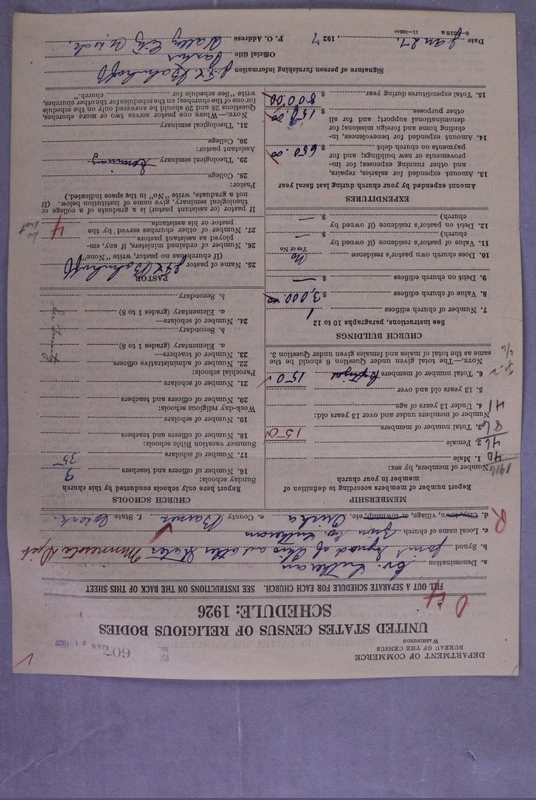 DEPARTMENT OF COMMERCE
BUREAU OF THE CENSUS
WASHINGTON
UNITED STATES CENSUS OF RELIGIOUS BODIES
SCHEDULE: 1926
FILL OUT A SEPARATE SCHEDULE FOR EACH CHURCH. SEE INSTRUCTIONS ON THE BACK OF THIS SHEET
a. Denomination Ev. Lutheran
b. Synod Joint Synod of Ohio and other States Minnesota Dist
c. Local name of church Lutheran
d. City, town, village, or township, etc. e. County Barnes f. State
MEMBERSHIP
Report number of members according to definition of
member in your church
Number of members, by sex: 1916
1. Male 40
2. Female 46
3. Total number of members 150 86
Number of members under and over 13 years old:
4. Under 13 years of age 41
5. 13 years old and over
6. Total number of members Baptized 150
NOTE.—The total given under Question 6 should be the
same as the total of males and females given under Question 3.
CHURCH BUILDINGS
See instructions, paragraphs 10 to 12
7. Number of church edifices 1
8. Value of church edifices $ 3,000.00
9. Debt on church edifices $ —
10. Does church own pastor's residence No
Yes or No
11. Value of pastor's residence (if owned by
church) $ —
12. Debt on pastor's residence (if owned by
church) $ —
EXPENDITURES
Amount expended by your church during last fiscal year
13. Amount expended for salaries, repairs,
and other running expenses; for im-
provements or new buildings; and for
payments on church debt $ 650.00
14. Amount expended for benevolences, in-
cluding home and foreign missions; for
denominational support; and for all
other purposes $ 150.00
15. Total expenditures during year $ 800.00
CHURCH SCHOOLS
Report here only schools conducted by this church
Sunday schools:
16. Number of officers and teachers 3
17. Number of scholars 35
Summer vacation Bible schools:
18. Number of officers and teachers
19. Number of scholars
Week-day religious schools:
20. Number of officers and teachers
21. Number of scholars
Parochial schools:
22. Number of administrative officers
23. Number of teachers—
a. Elementary (grades 1 to 8)
b. Secondary
24. Number of scholars—
a. Elementary (grades 1 to 8)
b. Secondary
PASTOR
25. Name of pastor
(If church has no pastor, write "None")
26. Number of ordained ministers, if any, em-
ployed as assistant pastors
27. Number of other churches served by the
pastor or his assistants 4
If pastor (or assistant pastor) is a graduate of a college or
theological seminary, give name of institution below. (If
not a graduate, write "No" in the space indicated.)
Pastor:
28. College
29. Theological seminary
Assistant pastor:
30. College
31. Theological seminary
NOTE.—Where one pastor serves two or more churches,
Questions 28 and 29 should be answered only on the schedule
for one of the churches; on the schedules for the other churches,
write "See schedule for church."
Signature of person furnishing information
Official title Pastor
P. O. Address Valley City N. Dak.
Date Jan 27, 1927